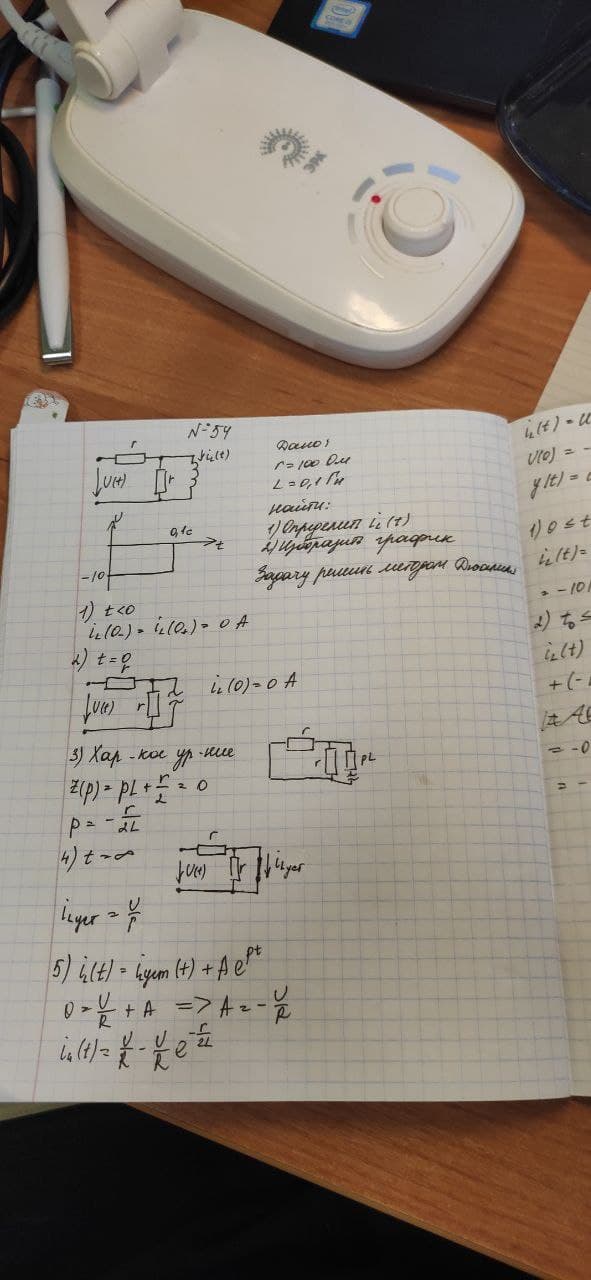 intel
CORE i5
ЭРА
№54
r
U(t)
r
iL(t)
Дано:
r = 100 Ом
L = 0,1 Гн
Найти:
1) Определить iL(t)
2) Изобразить график
Задачу решить методом
U
0,1c
t
-10
1) t<0
iL(0-) = iL(0+) = 0 A
2) t=0
r
U(t)
r
iL(0) = 0 A
3) Хар-кое ур-ние
Z(p) = pL + r/2 = 0
p = - r/2L
r
r
pL
4) t = ∞
r
U(t)
r
iLуст
iLуст = U/r
5) iL(t) = iуст(t) + Ae^pt
0 = U/R + A => A = - U/R
iL(t) = U/R - U/R e^-r/2L
iL(t) =
U(0) = -
y(t) =
1) 0 ≤ t
iL(t) =
= -10
2) t0 ≤
iL(t)
+(-
= -0
= -